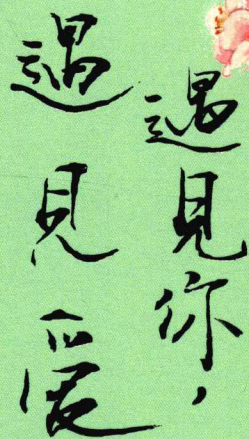 遇見你，
遇見愛